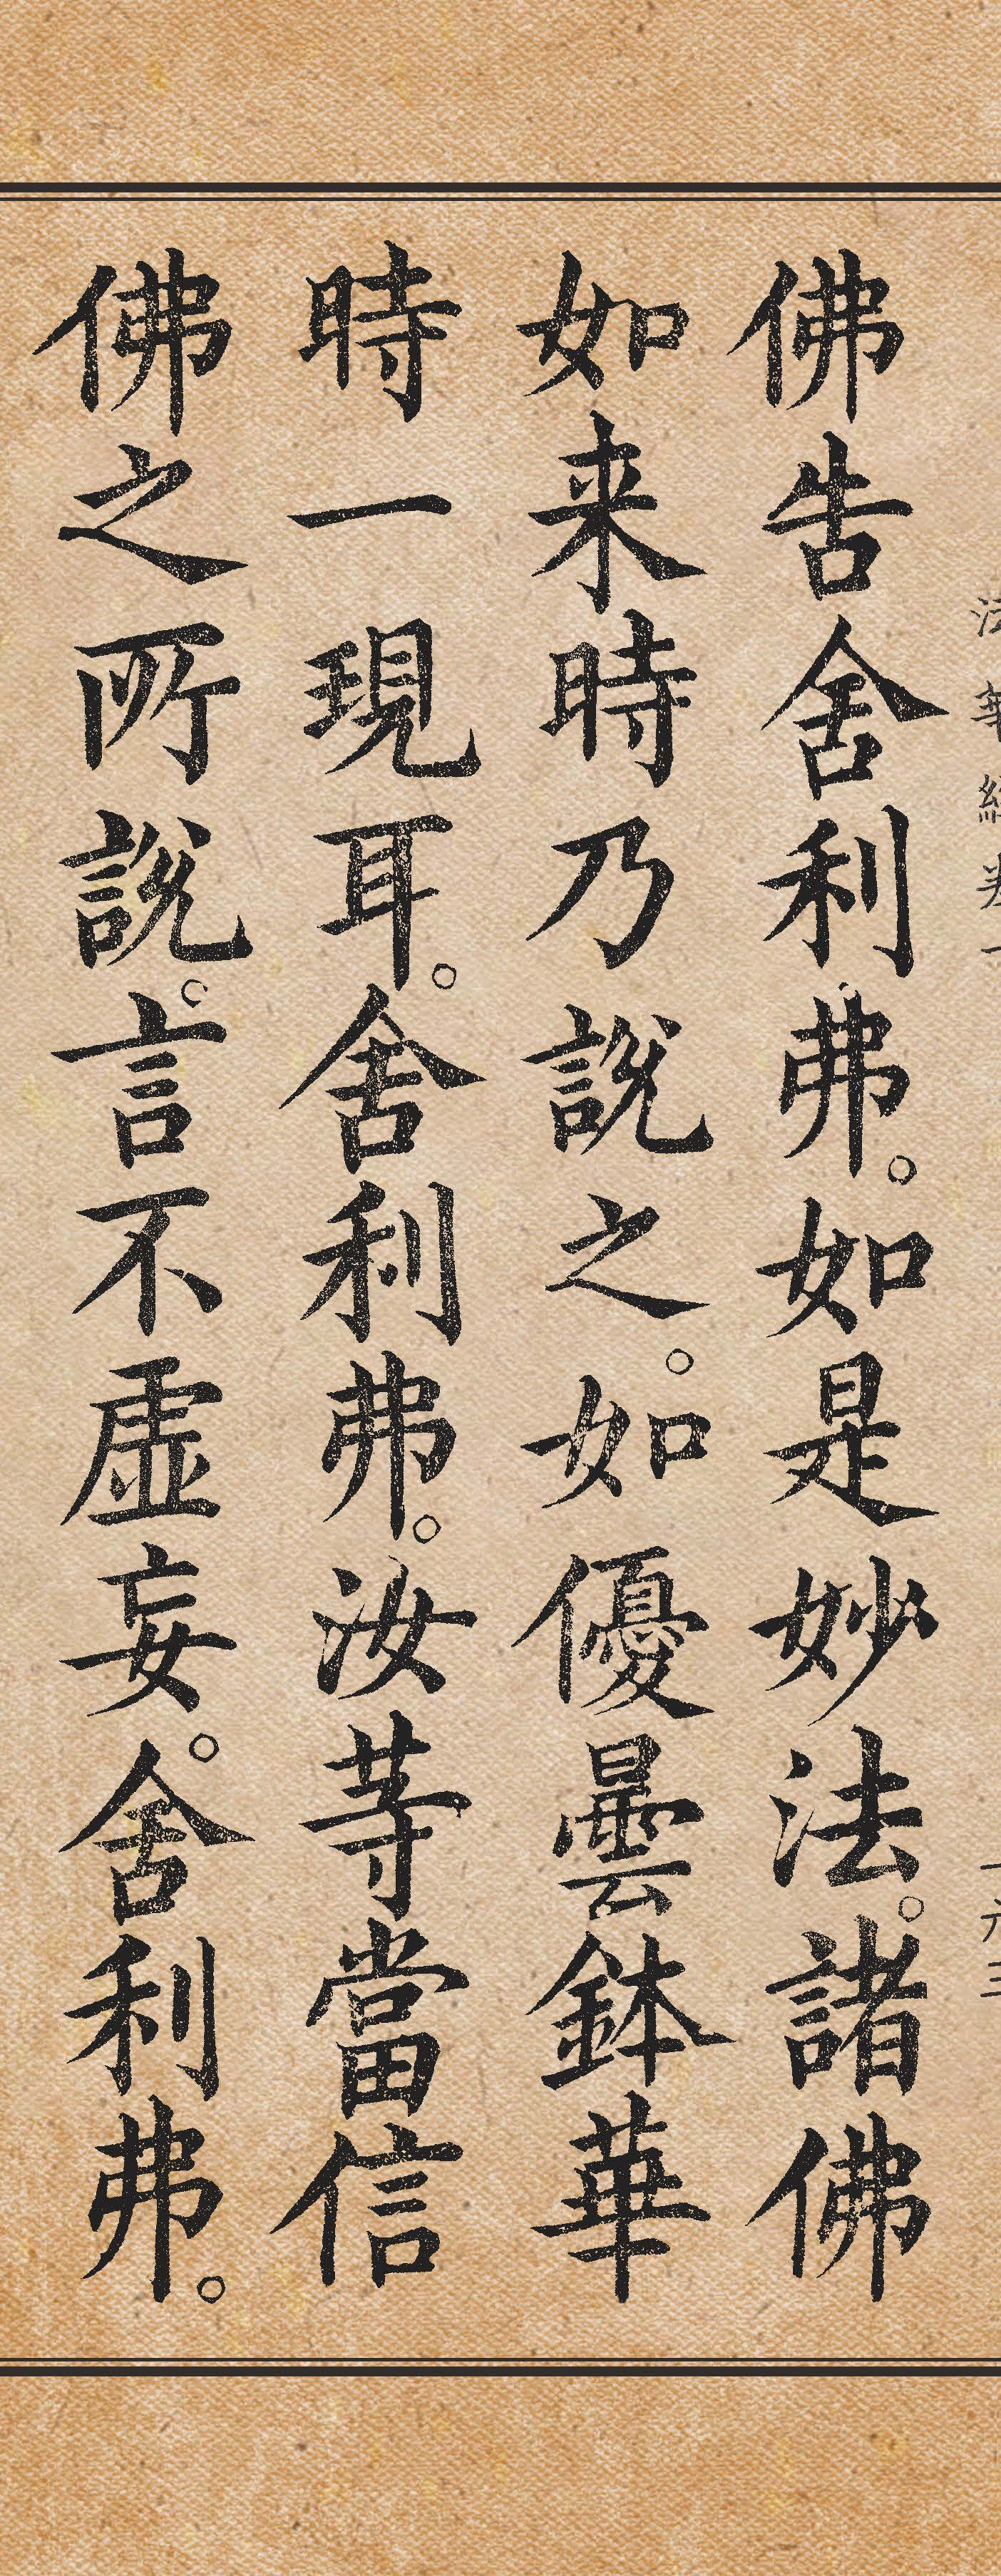 佛告舍利弗。如是妙法。諸佛
如来時乃說之。如優曇鉢華
時一現耳。舍利弗。汝等當信
佛之所說。言不虛妄。舍利弗。